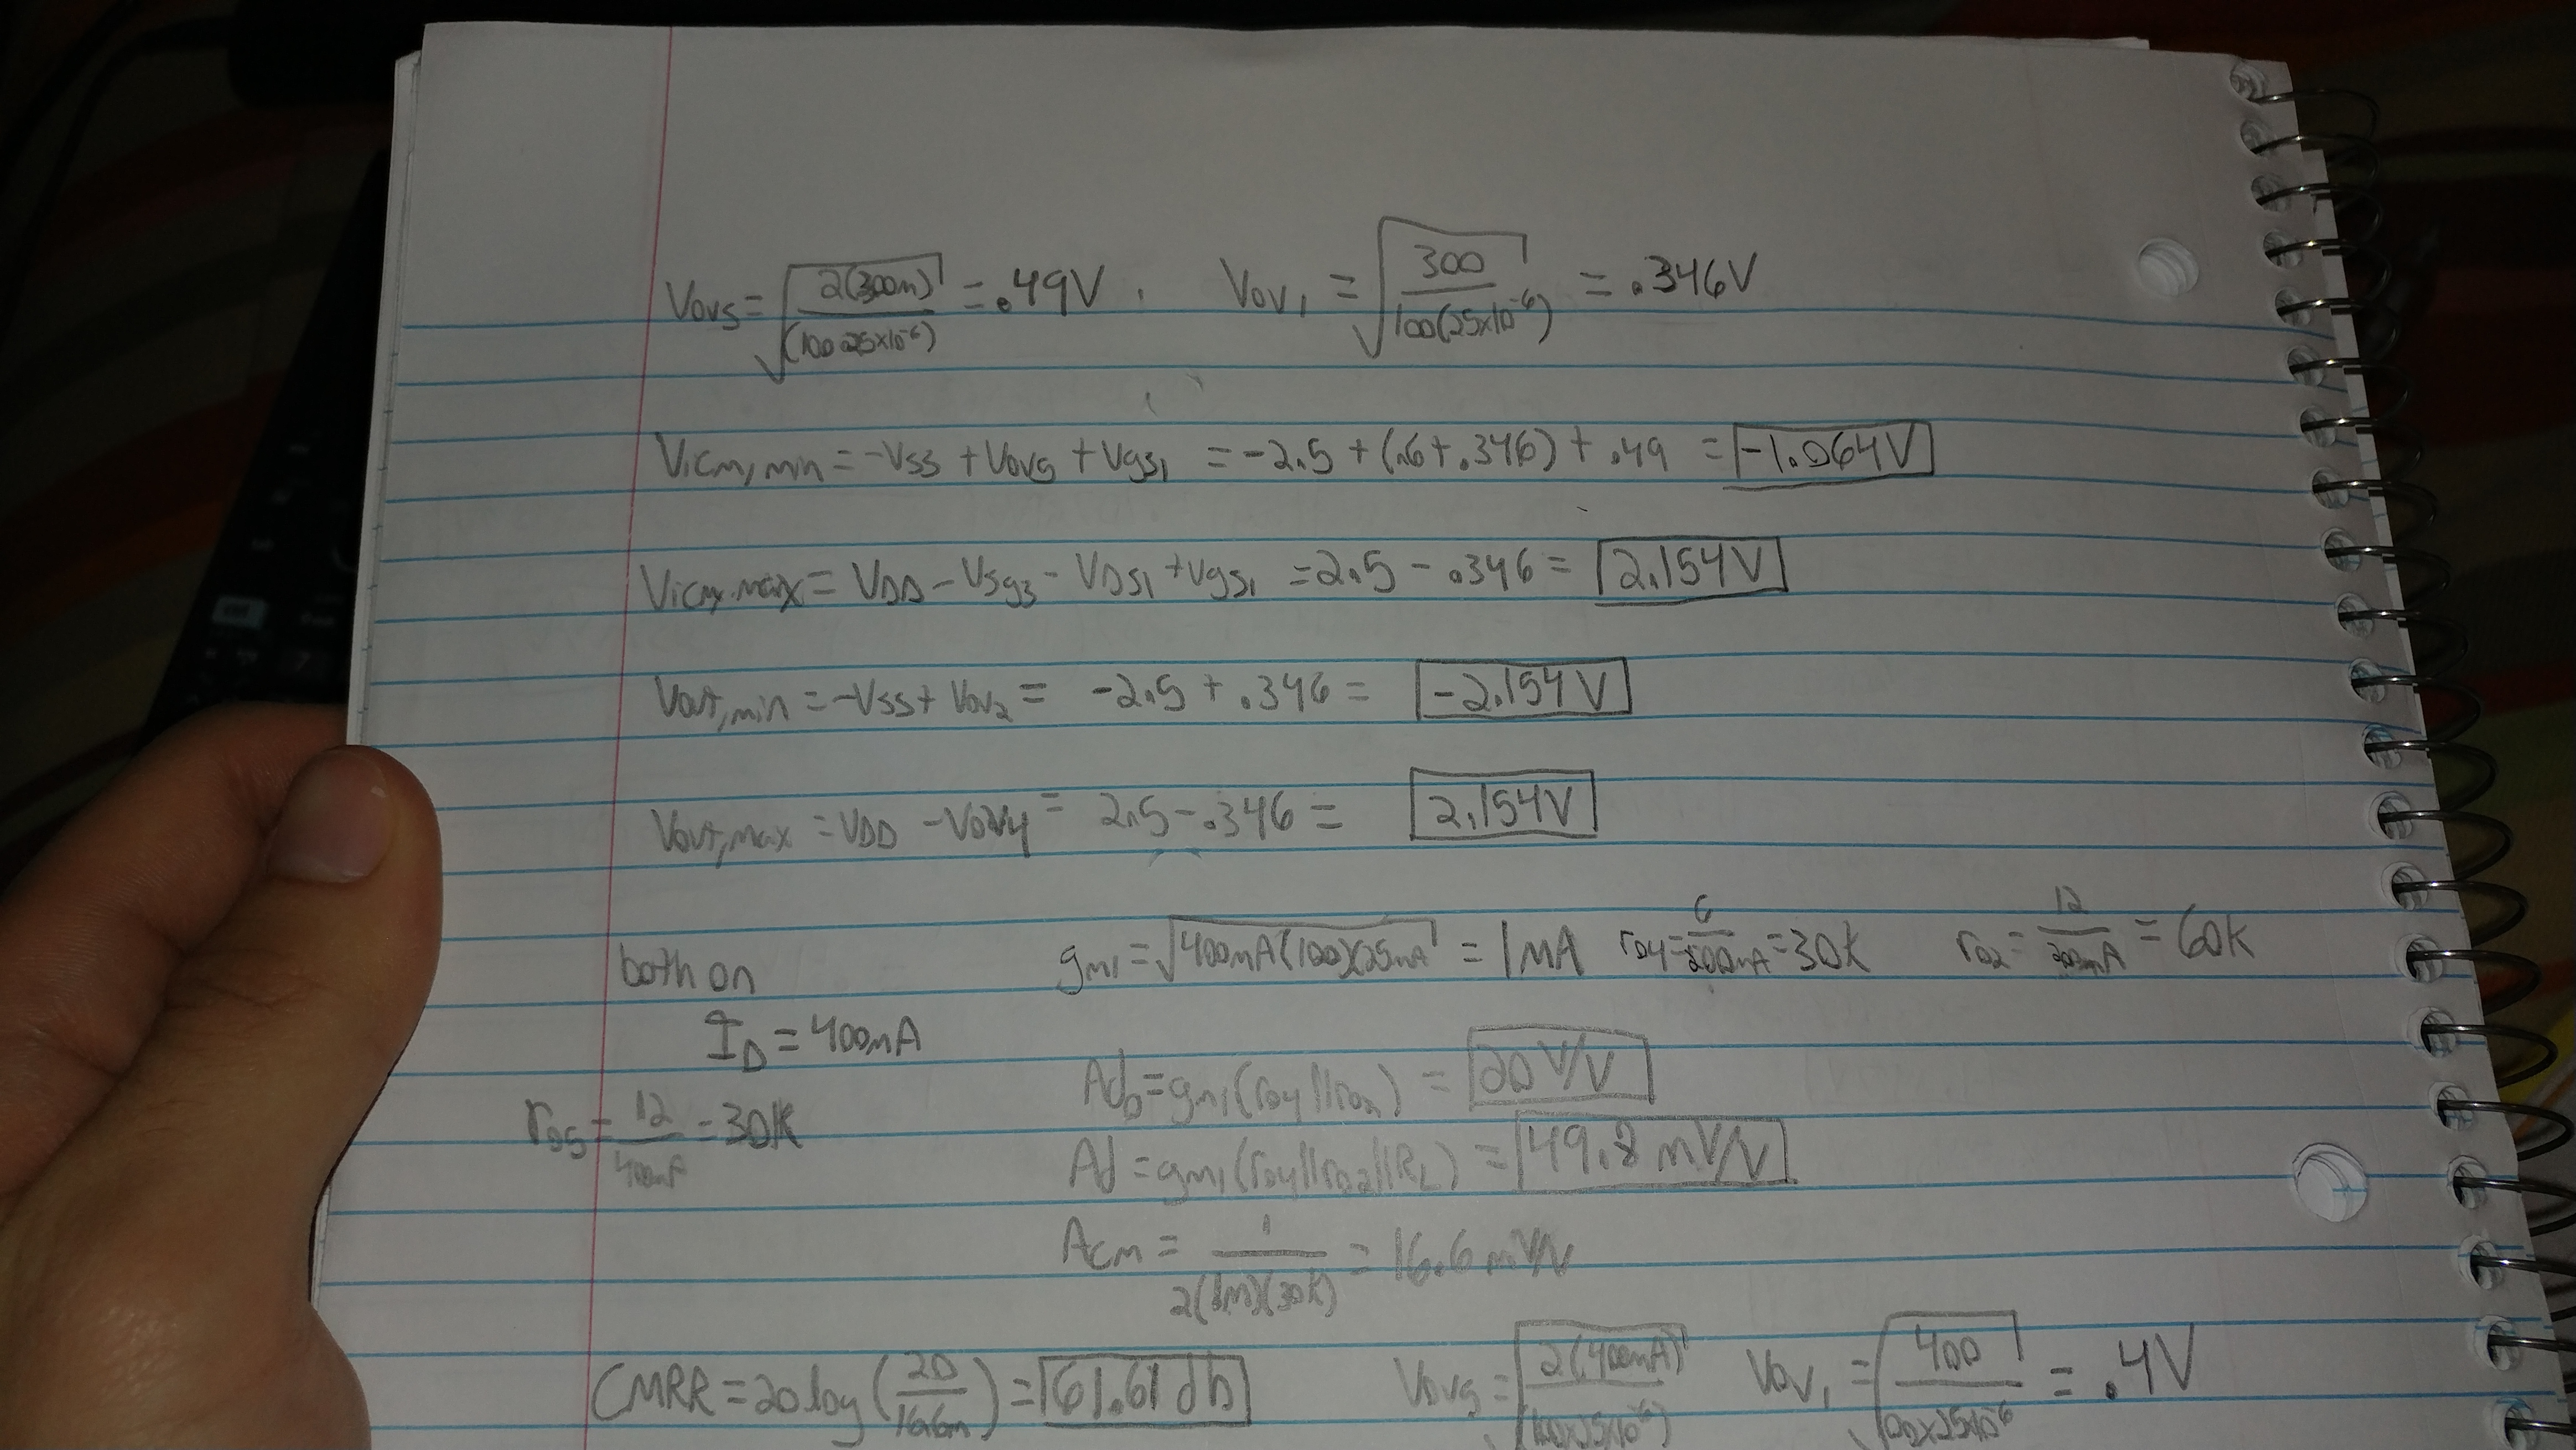 Vov5 = √(2(300m)/(100·25x10^-6)) = .49V, Vov1 = √(300/100(25x10^-6)) = .346V
Vicm,min = -Vss + Vov5 + Vgs1 = -2.5 + (.6+.346) + .49 = -1.064V
Vicm,max = VDD - Vsg3 - VDS1 + Vgs1 = 2.5 - .346 = 2.154V
Vout,min = -Vss + Vov2 = -2.5 + .346 = -2.154V
Vout,max = VDD - Vov4 = 2.5 - .346 = 2.154V
both on gm1 = √(400mA(100)(25mA) = 1mA ro4 = 6/200mA = 30K ro2 = 12/200mA = 60K
ID = 400mA
Ado = gm1(ro4||ro2) = 20V/V
ro5 = 12/400mA = 30K
Ad = gm1(ro4||ro2||RL) = 49.8mV/V
Acm = 1/2(1m)(30K) = 16.6mV/V
CMRR = 20log(20/16.6m) = 61.61db Vov5 = √(2(400mA)/(100x25x10^-6)) Vov1 = √(400/100x25x10^-6) = .4V